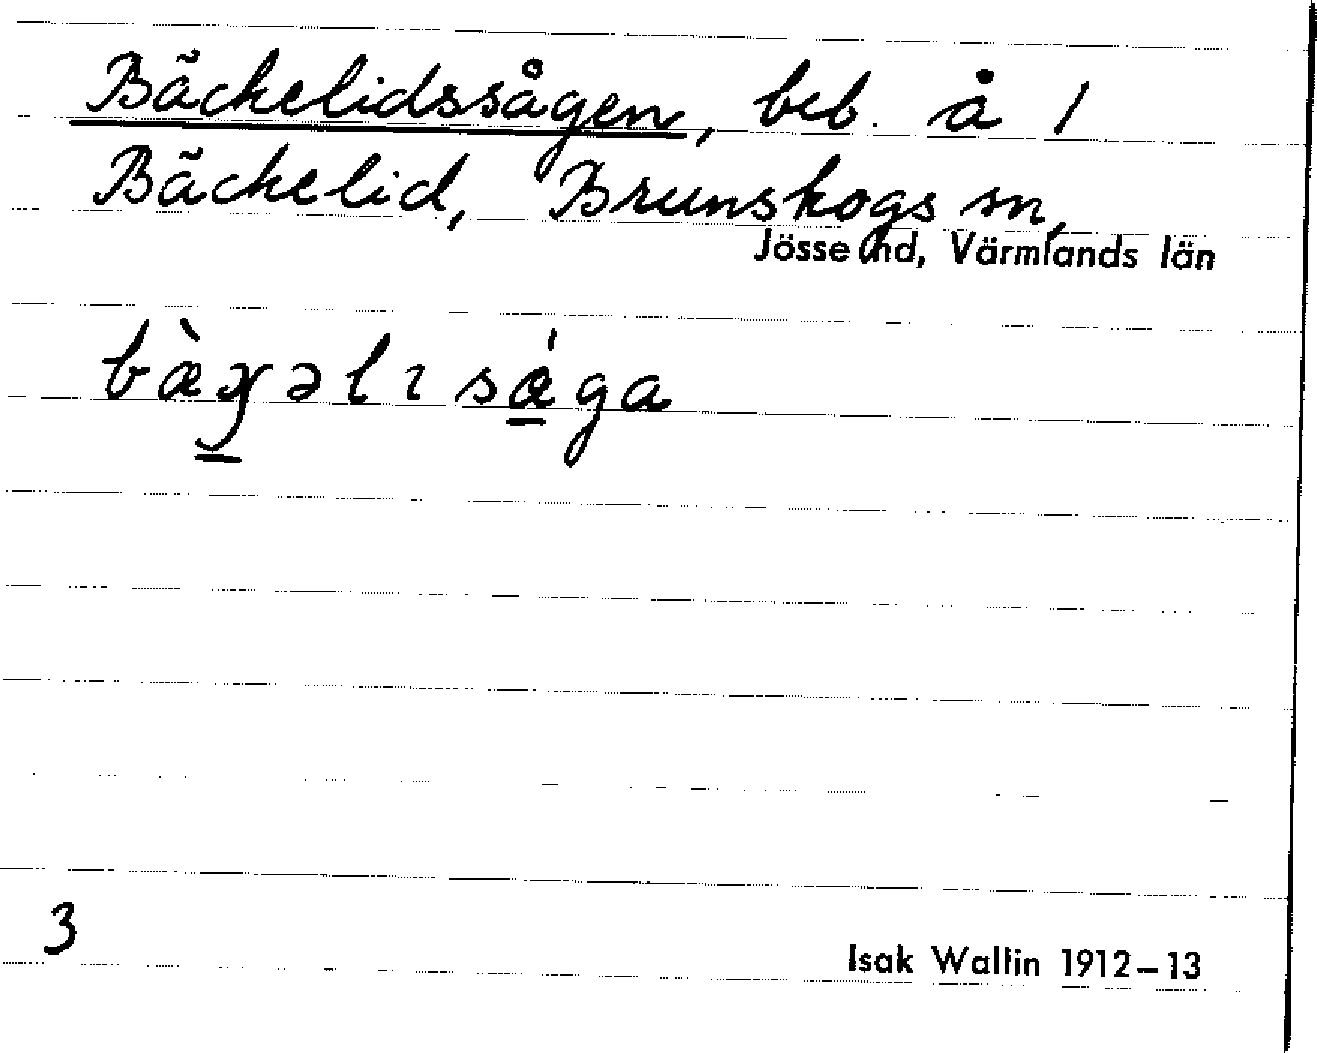 Bäckelidssågen, beb. å /
Bäckelid, Brunskogs sn,
Jösse hd, Värmlands län
3
Isak Wallin 1912–13